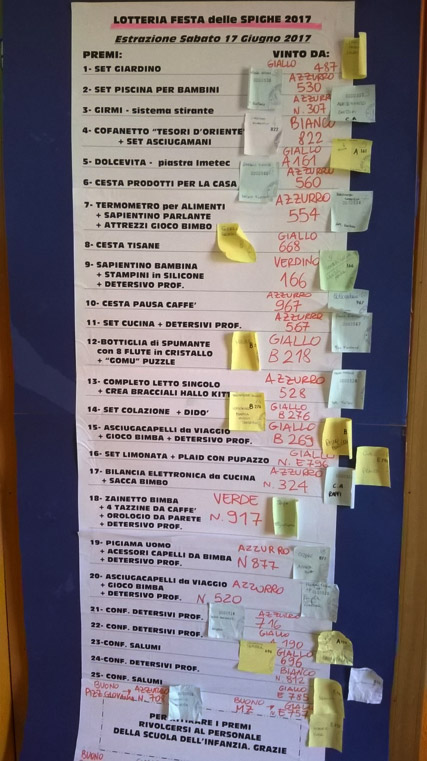 LOTTERIA FESTA delle SPIGHE 2017
Estrazione Sabato 17 Giugno 2017
PREMI: VINTO DA:
1- SET GIARDINO GIALLO 487
2- SET PISCINA PER BAMBINI AZZURRO 530
3- GIRMI - sistema stirante AZZURRO N. 307
4- COFANETTO "TESORI D'ORIENTE" BIANCO
+ SET ASCIUGAMANI 822
5- DOLCEVITA - piastra Imetec GIALLO A 161
6- CESTA PRODOTTI PER LA CASA AZZURRO 560
7- TERMOMETRO per ALIMENTI AZZURRO
+ SAPIENTINO PARLANTE 554
+ ATTREZZI GIOCO BIMBO
8- CESTA TISANE GIALLO 668
9- SAPIENTINO BAMBINA VERDINO
+ STAMPINI in SILICONE 166
+ DETERSIVO PROF.
10- CESTA PAUSA CAFFE' AZZURRO 967
11- SET CUCINA + DETERSIVI PROF. AZZURRO 567
12-BOTTIGLIA di SPUMANTE GIALLO
con 8 FLUTE in CRISTALLO B 218
+ "GOMU" PUZZLE
13- COMPLETO LETTO SINGOLO AZZURRO
+ CREA BRACCIALI HALLO KITT 528
14- SET COLAZIONE + DIDO' GIALLO B 276
15- ASCIUGACAPELLI da VIAGGIO GIALLO
+ GIOCO BIMBA + DETERSIVO PROF. B 269
16- SET LIMONATA + PLAID CON PUPAZZO GIALLO N. E 796
17- BILANCIA ELETTRONICA da CUCINA AZZURRO
+ SACCA BIMBO N. 324
18- ZAINETTO BIMBA VERDE
+ 4 TAZZINE DA CAFFE' N. 917
+ OROLOGIO DA PARETE
+ DETERSIVO PROF.
19- PIGIAMA UOMO AZZURRO
+ ACESSORI CAPELLI DA BIMBA N 877
+ DETERSIVO PROF.
20- ASCIUGACAPELLI da VIAGGIO AZZURRO
+ GIOCO BIMBA
+ DETERSIVO PROF. N. 520
21- CONF. DETERSIVI PROF. AZZURRO 716
22- CONF. DETERSIVI PROF. GIALLO 190
23-CONF. SALUMI GIALLO 696
24-CONF. DETERSIVI PROF. BIANCO N. 812
25- CONF. SALUMI GIALLO E 785
BUONO AZZURRO
BUONO MZ GIALLO E 757
PER RITIRARE I PREMI
RIVOLGERSI AL PERSONALE
DELLA SCUOLA DELL'INFANZIA. GRAZIE
BUONO